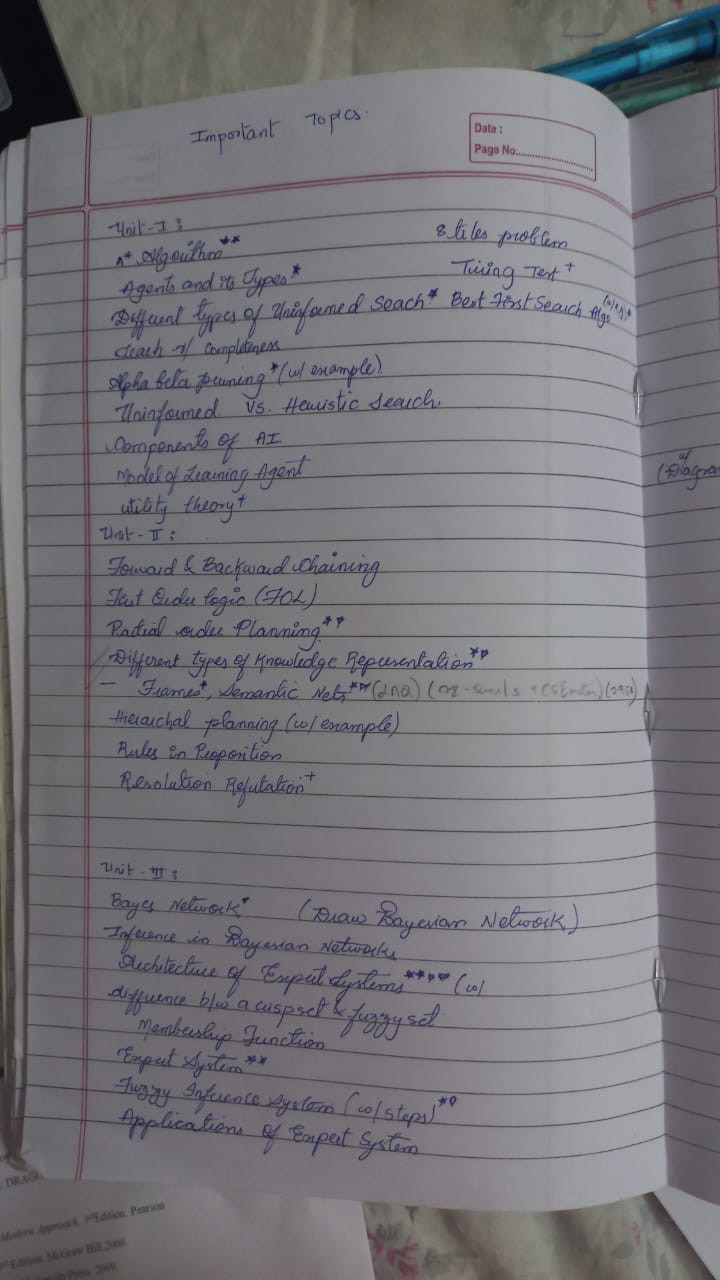 Important Topics.
Date :
Page No.
Unit-I :
A* Algorithm**
8 tiles problem
Agents and its Types*
Turing Test+
Different types of Uninformed Seach* Best First Search Algo (w/eg)*
completeness
Alpha beta pruning* (w/ example)
Uninformed Vs. Heuristic Search.
Components of AI
Model of Learning Agent
utility theory+
Unit-II :
Forward & Backward Chaining
First Order logic (FOL)
Partial order Planning.**
Different types of Knowledge Representation**
- Frames*, Semantic Nets**
Hierarchal planning (w/ example)
Rules in Proposition
Resolution Refutation+
Unit-III :
Bayes Network* (Draw Bayesian Network)
Inference in Bayesian Networks
Architecture of Expert Systems**** (w/
difference b/w a crisp set & fuzzy set
Membership Function
Expert System**
Fuzzy Inference System (w/ steps)**
Applications of Expert System
w/
(Diagra
: DRAG
Modern Approach, 3rd Edition, Pearson
Edition, McGraw Hill, 2009.
Press, 2009.